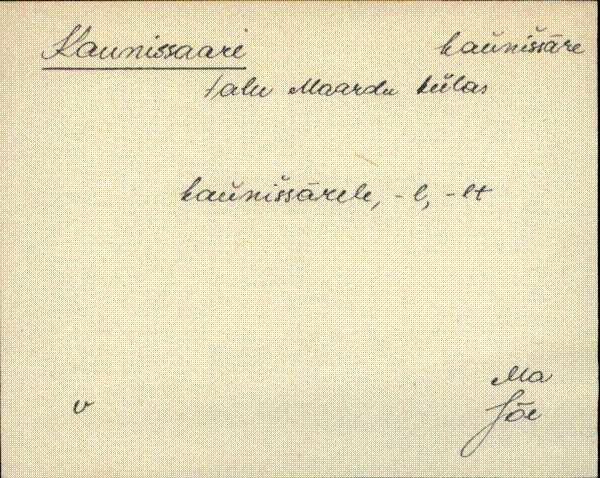 Kaunissaari kaŭnišsāre
talu Maardu külas
kaŭnišsārele, -l, -lt
Ma
v Jõe